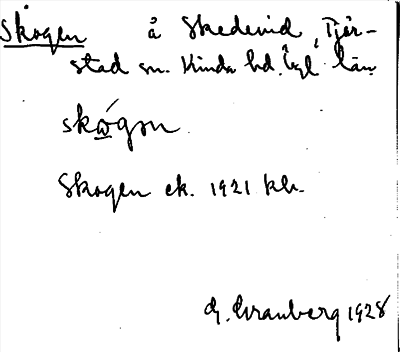 Skogen å Skedevid, Tjär-
stad sn. Kinda hd. Ögl. län
skógən
Skogen ek. 1921 kb.
G. Granberg 1928